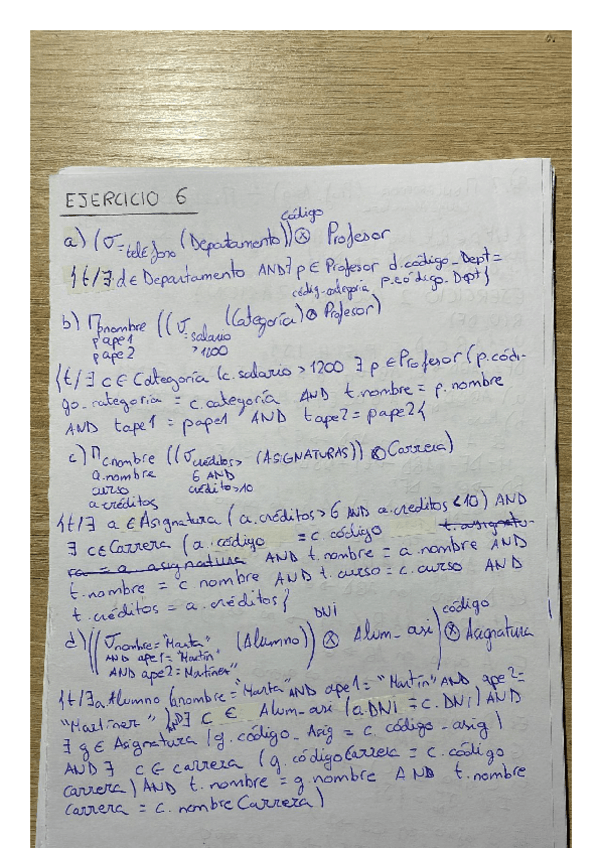 EJERCICIO 6
código
a) (σ=teléfono (Departamento)) ⊗ Profesor
{t/∃ d ∈ Departamento AND ∃ p ∈ Profesor d.código_Dept =
códig-categoria p.código.Dept}
b) Π pnombre ((σ=salario (Categoría) ⊗ Profesor)
pape1 >1200
pape2
{t/∃ c ∈ Categoría (c.salario > 1200 ∃ p ∈ Profesor (p.códi-
go_categoria = c.categoría AND t.nombre = p.nombre
AND tape1 = pape1 AND tape2 = pape2{
c) Π c.nombre ((σ créditos> (ASIGNATURAS)) ⊗ Carrera)
a.nombre 6 AND
curso crédito>10
a.créditos
{t/∃ a ∈ Asignatura (a.créditos > 6 AND a.creditos < 10) AND
∃ c ∈ Carrera (a.código = c.código t.asignatu-
ra = a asignatura AND t.nombre = a.nombre AND
t.nombre = c nombre AND t.curso = c.curso AND
t.créditos = a.créditos}
DNi código
d) ((σ nombre="Marta" (Alumno)) ⊗ Alum_asi) ⊗ Asignatura
AND ape1="Martín"
AND ape2="Martínez"
{t/∃ a Alumno (anombre = "Marta" AND ape1 = "Martín" AND ape2 =
"Martiner") AND ∃ c ∈ Alum-asi (a.DNi = c.DNi) AND
∃ g ∈ Asignatura (g.código_Asig = c.código-asig)
AND ∃ c ∈ carrera (g.códigoCarrera = c.código
carrera) AND t.nombre = g.nombre AND t.nombre
carrera = c.nombreCarrera)